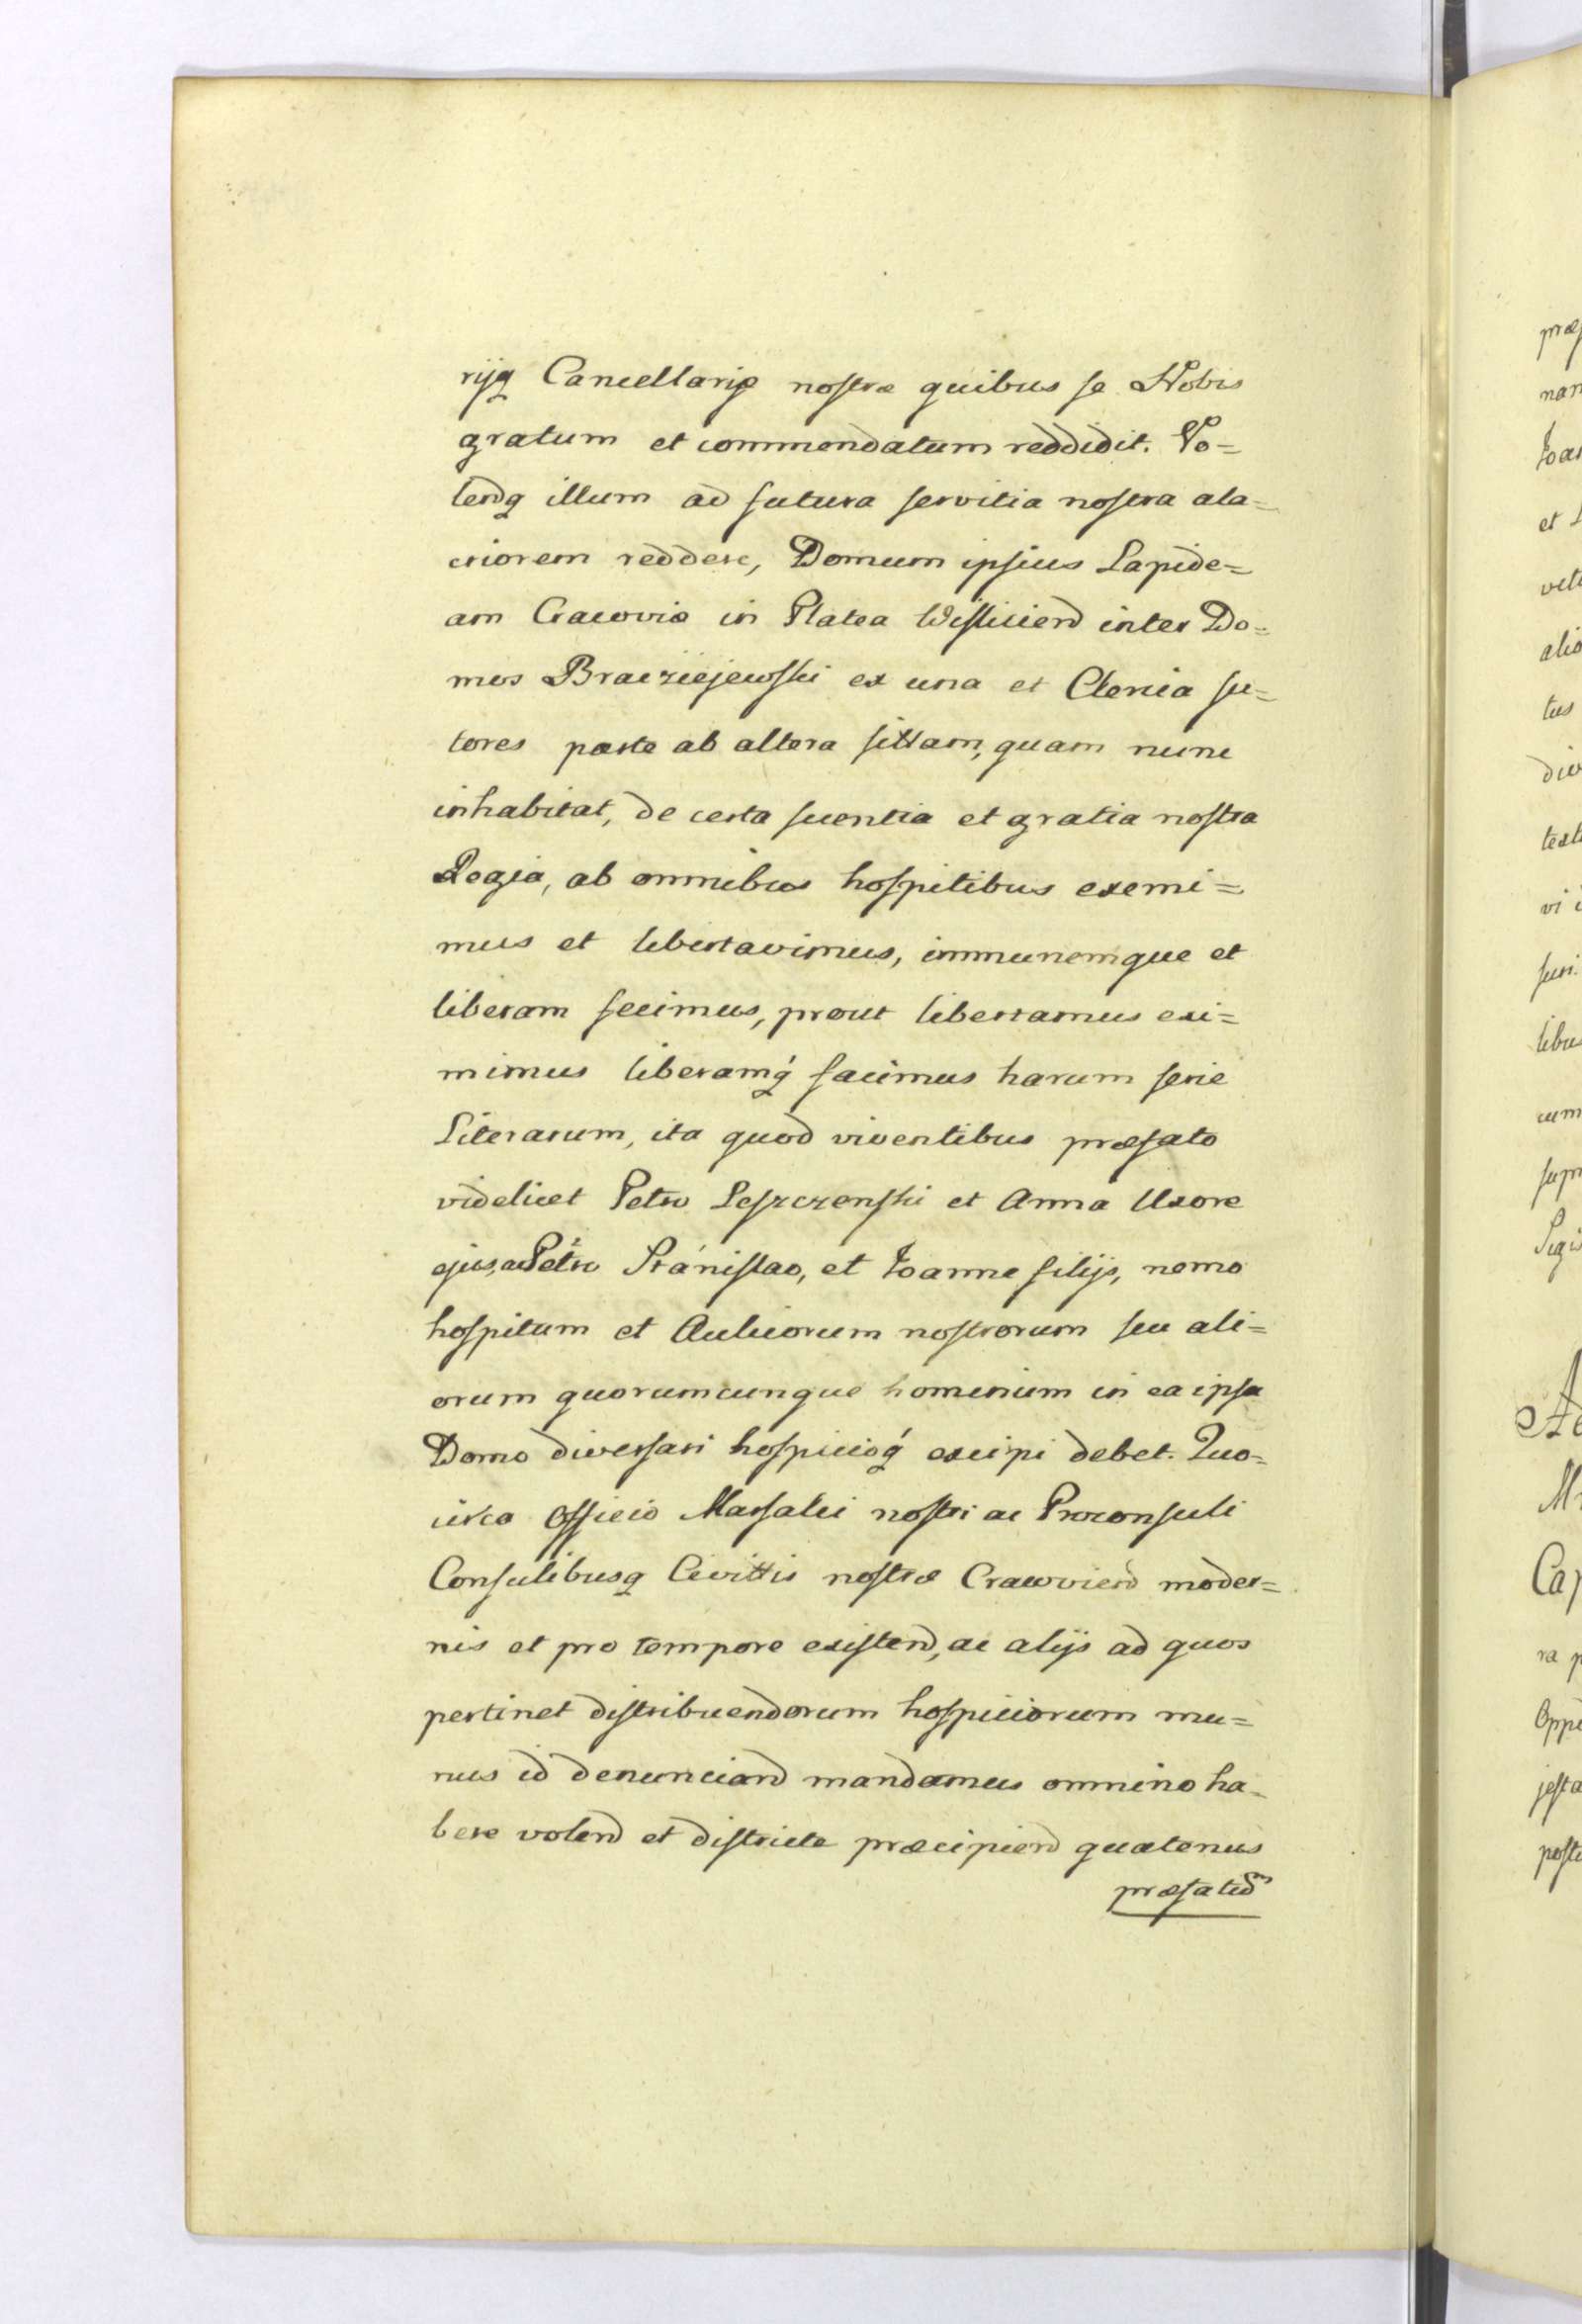 rijq Cancellariæ nostræ quibus se Nobis
gratum et commendatum reddidit. Vo=
lendq illum ad futura servitia nostra ala=
criorem reddere, Domum ipsius Lapide=
am Cracoviæ in Platea Wisliciend inter Do=
mos Braeziejewski ex una et Clenia su=
tores parte ab altera sittam, quam nunc
inhabitat, de certa scientia et gratia nostra
Regia, ab omnibus hospitibus exemi=
mus et libertavimus, immunemque et
liberam fecimus, prout libertamus exi=
mimus liberamq́ facimus harum serie
Literarum, ita quod viventibus præfato
videlicet Petro Leszczenski et Anna Uxore
ejus, ac Petro Stánislao, et Joanne filijs, nemo
hospitum et Aulicorum nostrorum seu ali=
orum quorumcunque hominum in ea ipsa
Domo diversari hospicioq́ excipi debet. Quo=
circa Officio Marsalci nostri ac Proconsuli
Consulibusq Civittis nostræ Cracoviend moder=
nis et pro tempore existend, ac alijs ad quos
pertinet distribuendorum hospiciorum mu=
nus id denunciand mandamus omnino ha=
bere volend et districte præcipiend quatenus
præfatu͠
præ
nan
Joan
et L
vete
alio
tus
div
text
vi i
suri.
libus
cum
sup
Sigi
Ad
Ca
ra p
Oppi
jesta
poste